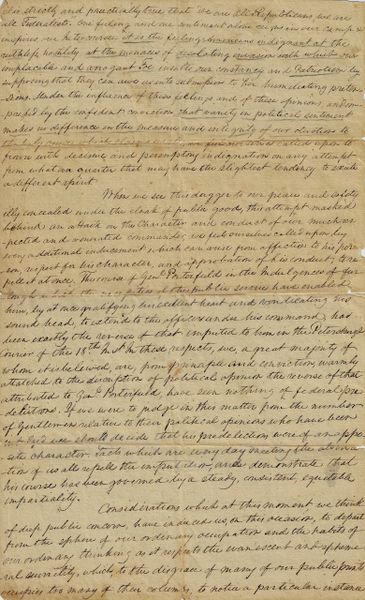 it is strictly and practically true that "we are all Republicans, we are
all Federalists. One feeling and one sentiment alone
inspires us
ruthless hostility at the menaces of desolating invasion with which our
implacable and arrogant foe
supposing that they can awe us into submission to her humiliating preten-
sions. Under the influence of these feelings and of these opinions, and im-
pressed by the confident conviction that variety in political sentiment
makes no difference in the measure and integrity of our devotion to
we feel ourselves called upon to
frown with decisive and peremptory indignation on any attempt
from whatever quarter that may have the slightest tendency to excite
a different spirit
When we see this dagger to our peace and safety
illy concealed under the cloak of public good, this attempt masked
behind an attack on the character and conduct of our much res-
pected and venerated commander, we feel ourselves called upon by
every additional inducement which can arise from affection to his per-
son, respect for his character, and approbation of his conduct, to re-
pel it at once. The course of Genl. Porterfield in the indulgences of fur-
lough which the exigencies of the public service have enabled
him, by at once gratifying his excellent heart and vindicating his
sound head, to extend to the officers under his command, has
been exactly the reverse of that imputed to him in the Petersburg
Courier of the 18th Inst. In these respects, we, a great majority of
whom it is believed, are, from principle and conviction, warmly
attached to the description of political opinion the reverse of that
attributed to Genl. Porterfield, have seen nothing of federal pre-
delictions. If we were to judge in this matter from the number
of Gentlemen relative to their political opinions who have been
we should decide that his predelections were of an oppo-
site character. Facts which are every day meeting the observa-
tion of us all repell the imputation, and demonstrate that
his course has been governed by a steady, consistent, equitable
impartiality.
Considerations which at this moment we think
of deep public concern, have induced us on this occasion, to depart
from the sphere of our ordinary occupation and the habits of
our ordinary thinking, as it respects the evanescent and epheme-
ral scurrility, which, to the disgrace of many of our public prints
occupies too many of their columns, to notice a particular instance